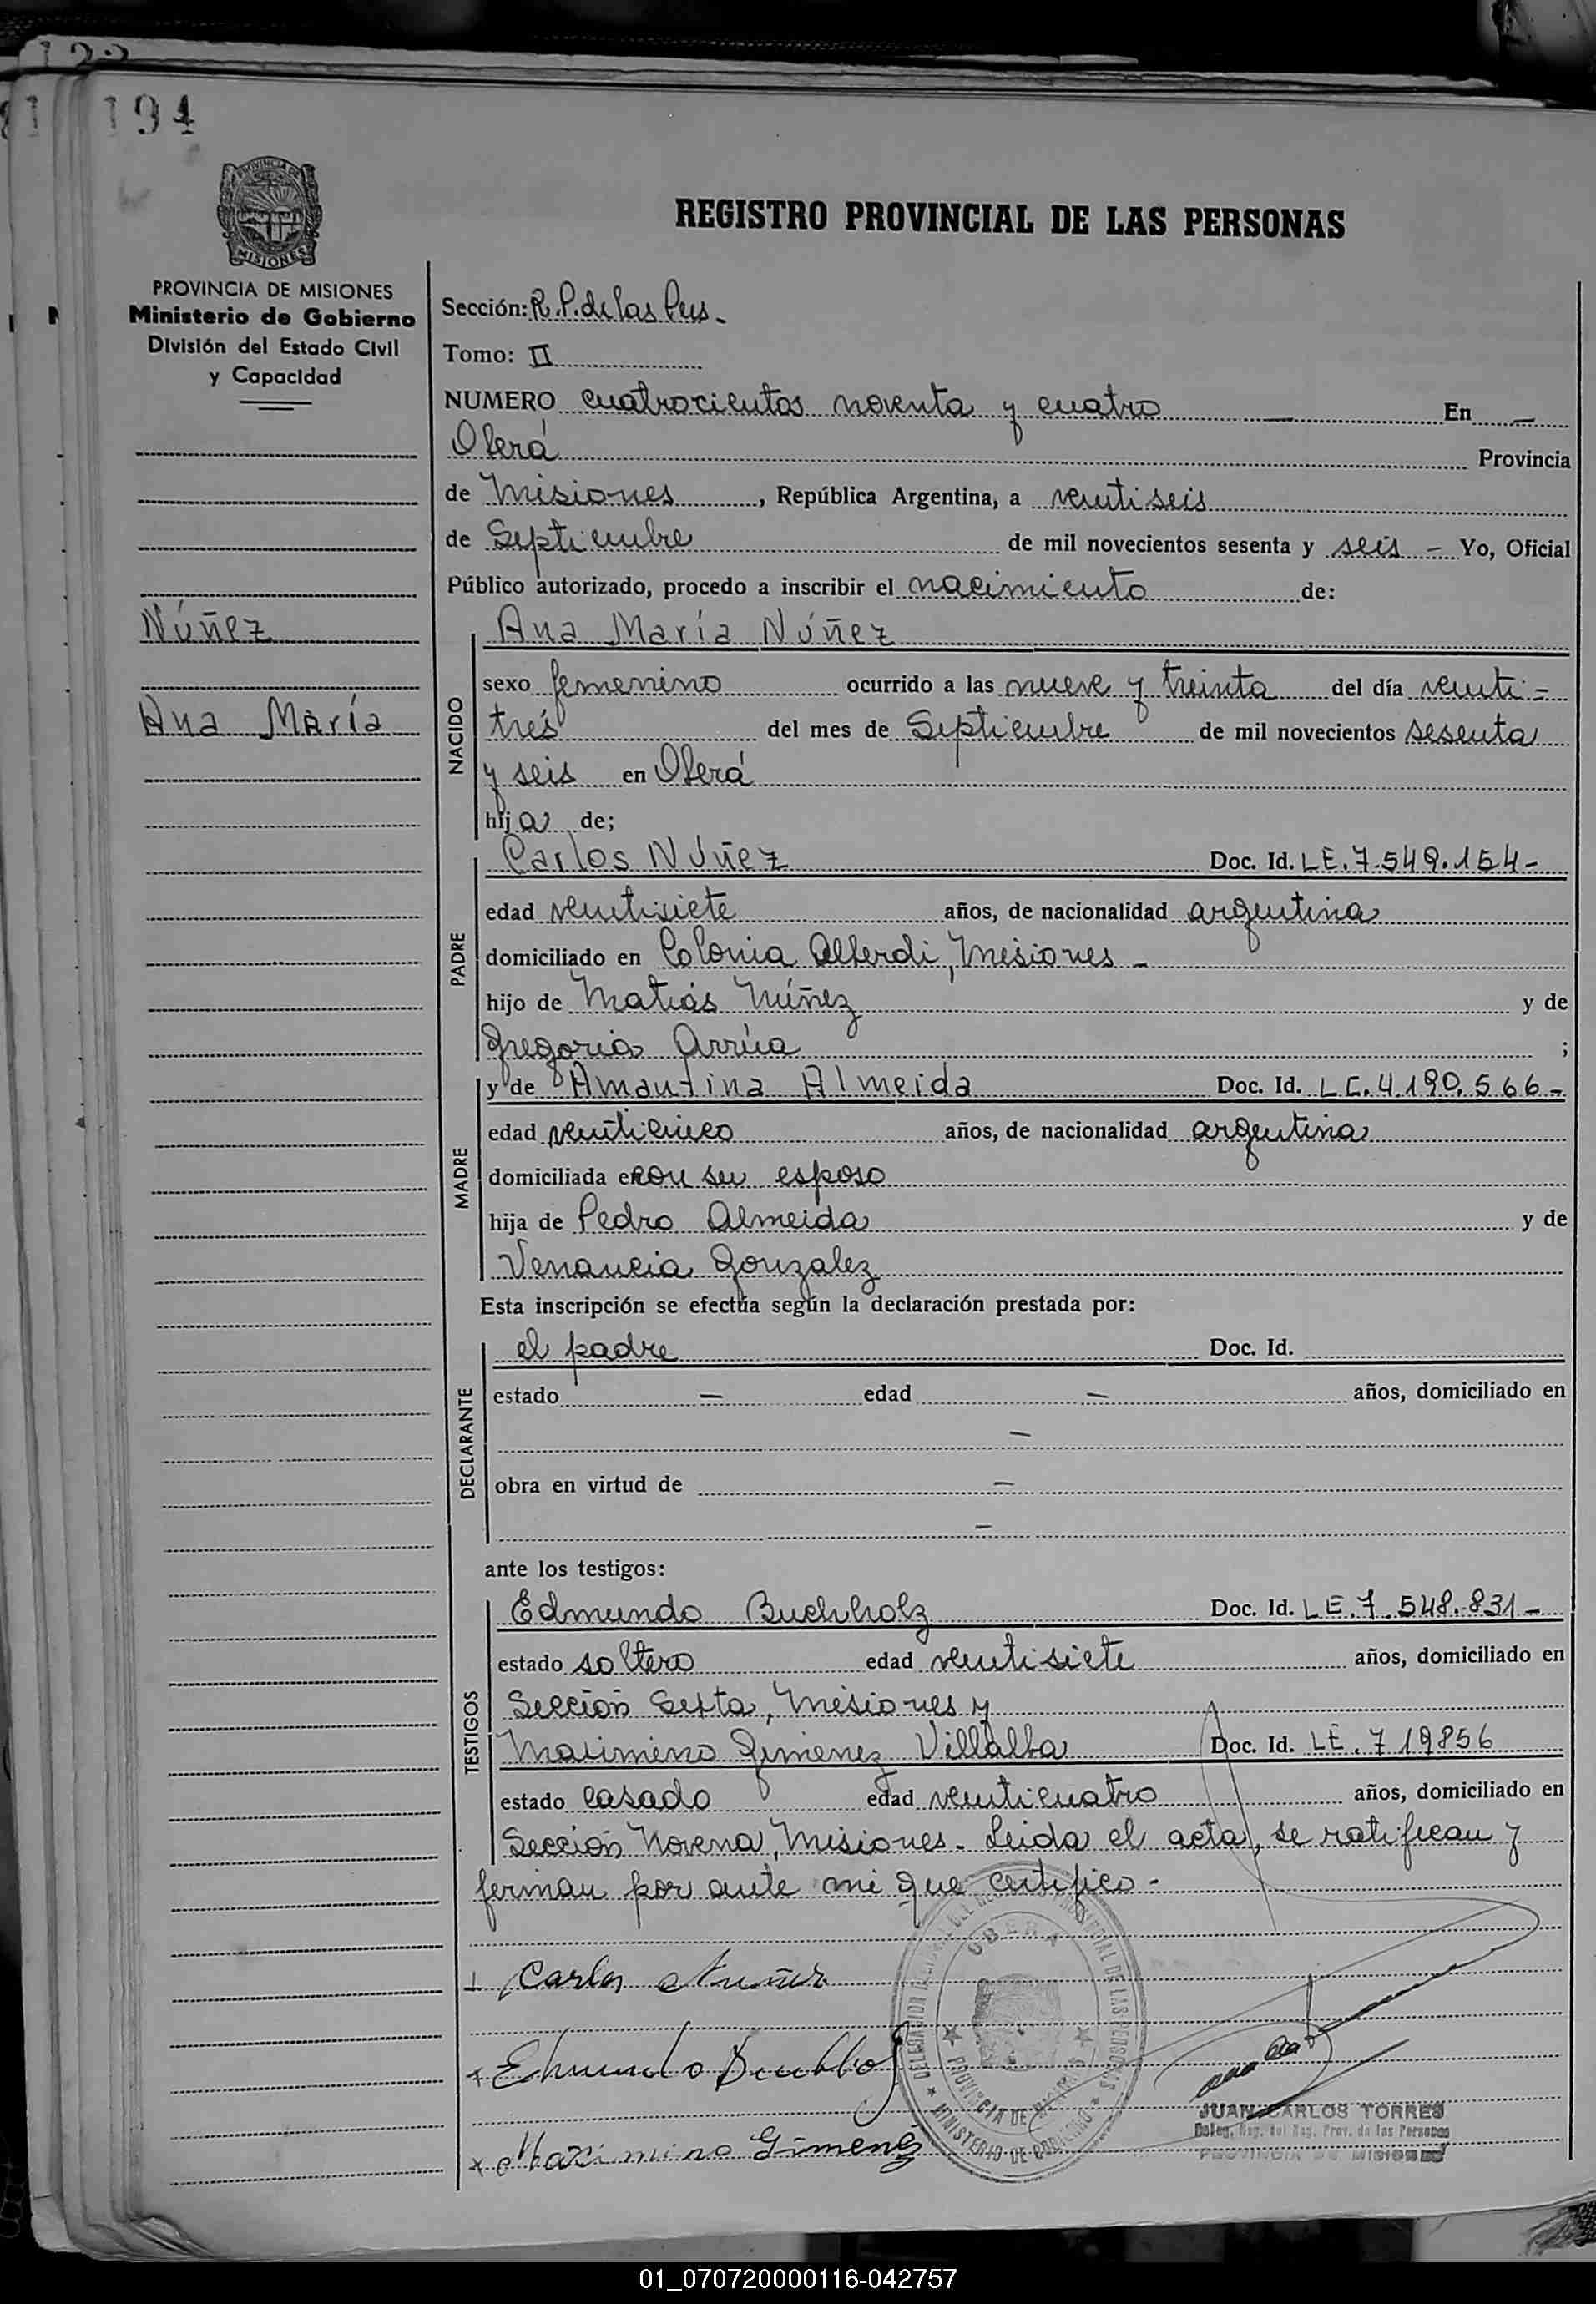 194
PROVINCIA DE MISIONES
Ministerio de Gobierno
División del Estado Civil
y Capacidad
Núñez
Ana María
REGISTRO PROVINCIAL DE LAS PERSONAS
Sección: R.P. de las Pers.
Tomo: II
NUMERO cuatrocientos noventa y cuatro — En —
Oberá Provincia
de Misiones, República Argentina, a ventiseis
de Septiembre de mil novecientos sesenta y seis - Yo, Oficial
Público autorizado, procedo a inscribir el nacimiento de:
NACIDO
Ana María Núñez
sexo femenino ocurrido a las nueve y treinta del día venti-
trés del mes de Septiembre de mil novecientos sesenta
y seis en Oberá
hija de;
PADRE
Carlos Núñez Doc. Id. L.E. 7.549.154-
edad ventisiete años, de nacionalidad argentina
domiciliado en Colonia Alberdi, Misiones -
hijo de Matías Núñez y de
Gregoria Arrúa ;
MADRE
y de Amantina Almeida Doc. Id. L.C. 4.190.566-
edad venticinco años, de nacionalidad argentina
domiciliada en con su esposo
hija de Pedro Almeida y de
Venancia Gonzalez
Esta inscripción se efectúa según la declaración prestada por:
DECLARANTE
el padre Doc. Id.
estado — edad — años, domiciliado en
—
obra en virtud de —
—
ante los testigos:
TESTIGOS
Edmundo Buchholz Doc. Id. L.E. 7.548.831-
estado soltero edad ventisiete años, domiciliado en
Sección Sexta, Misiones y
Maximino Gimenez Villalba Doc. Id. LE. 719856
estado casado edad venticuatro años, domiciliado en
Sección Novena, Misiones. Leida el acta, se ratifican y
firman por ante mi que certifico -
Carlos Nuñez
Edmundo
Maximino Gimenez
OBERA
PROVINCIA DE MISIONES
MINISTERIO DE GOBIERNO
JUAN CARLOS TORRES
Deleg. Reg. del Reg. Prov. de las Personas
PROVINCIA DE MISIONES
01_070720000116-042757